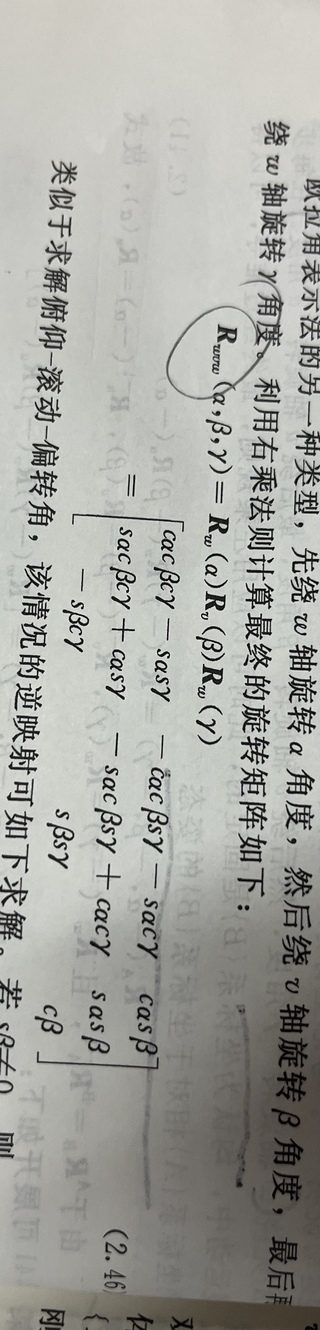 欧拉角表示法的另一种类型，先绕 w 轴旋转 α 角度，然后绕 v 轴旋转 β 角度，最后
绕 w 轴旋转 γ 角度。利用右乘法则计算最终的旋转矩阵如下：
R_wvw(α,β,γ)=R_w(α)R_v(β)R_w(γ)
= [ cαcβcγ－sαsγ －cαcβsγ－sαcγ cαsβ
sαcβcγ＋cαsγ －sαcβsγ＋cαcγ sαsβ
－sβcγ sβsγ cβ ] (2.46
类似于求解俯仰-滚动-偏转角，该情况的逆映射可如下求解。若 sβ≠0，则